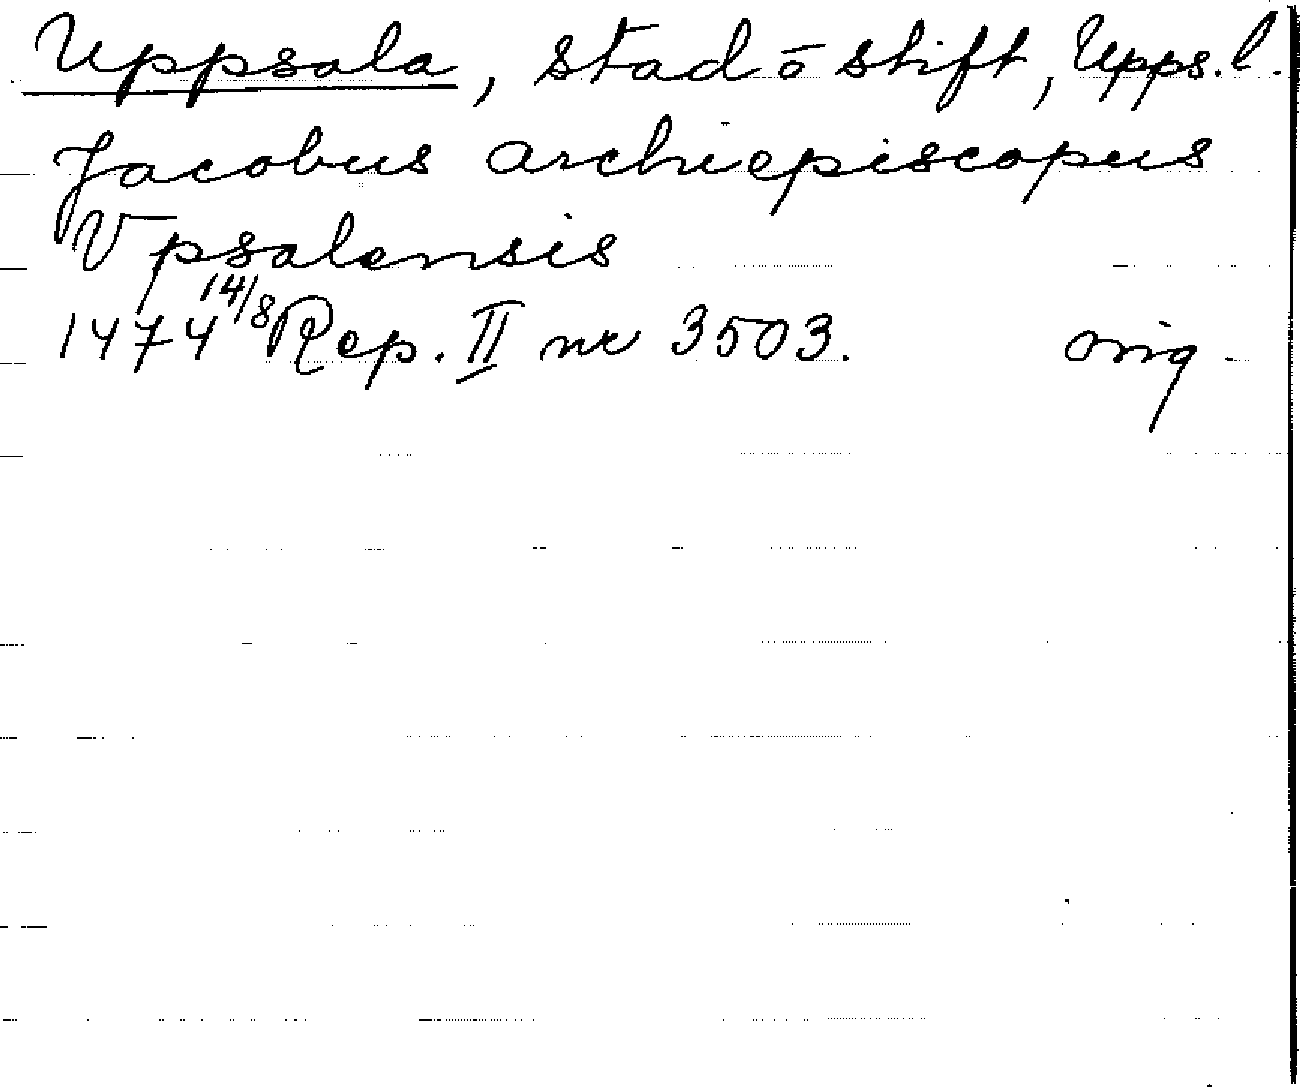 Uppsala, stad o stift, Upps. l.
Jacobus archiepiscopus
Vpsalensis
1474 14/8 Rep. II nr 3503. orig